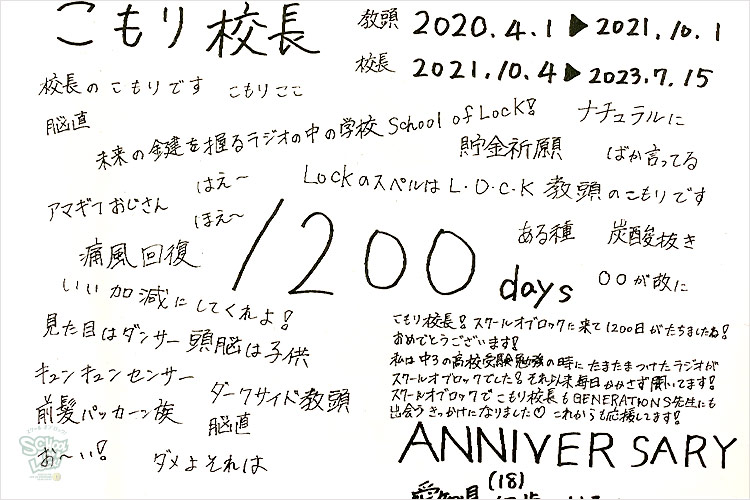 こもり校長
教頭 2020.4.1▶2021.10.1
校長 2021.10.4▶2023.7.15
校長のこもりです こもりここ
脳直
未来の鍵を握るラジオの中の学校 School of Lock! ナチュラルに
貯金祈願 ばか言ってる
アマギフおじさん はえ〜 LockのスペルはL・O・C・K 教頭のこもりです
ほえ〜
痛風回復 1200 days ある種 炭酸抜き
〇〇が故に
いい加減にしてくれよ!
見た目はダンサー頭脳は子供
キュンキュンセンサー
前髪パッカーン族 ダークサイド教頭
脳直
お〜い! ダメよそれは
こもり校長!スクールオブロックに来て1200日がたちましたね!
おめでとうございます!
私は中3の高校受験勉強の時にたまたまつけたラジオが
スクールオブロックでした!それ以来毎日かかさず聞いてます!
スクールオブロックでこもり校長もGENERATIONS先生にも
出会うきっかけになりました♡これからも応援してます!
ANNIVERSARY
(18)
愛知県